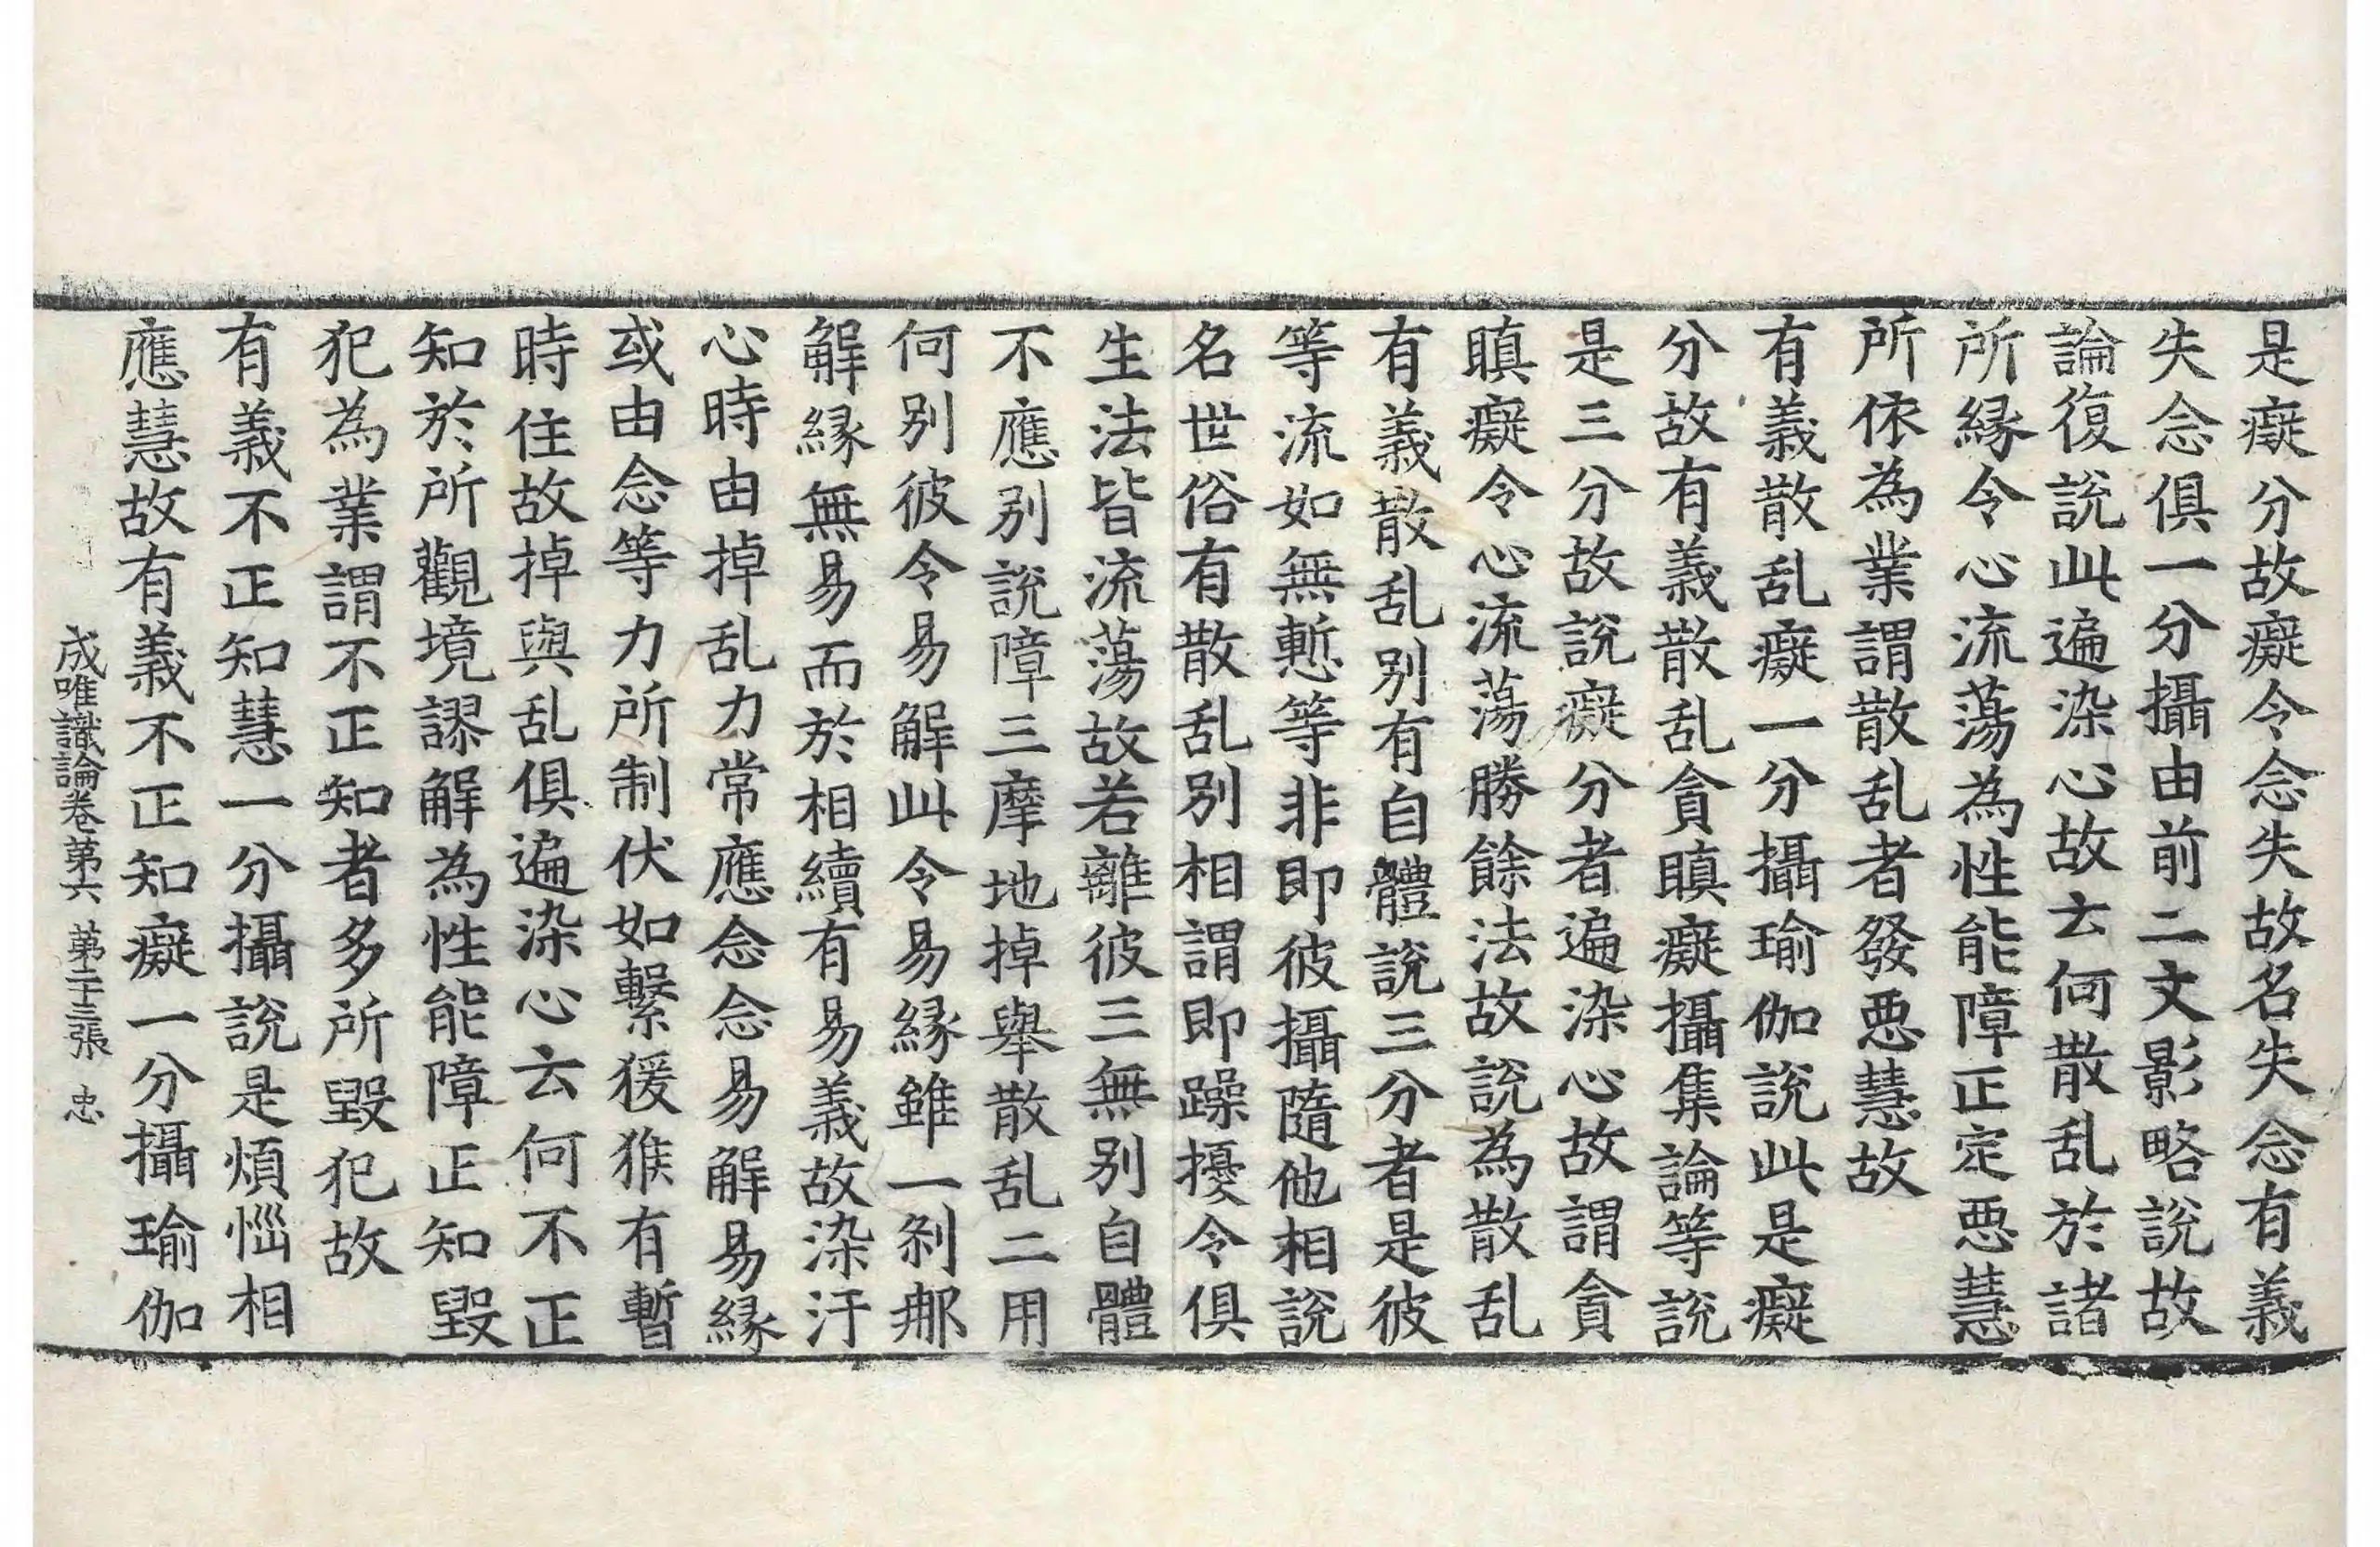 是癡分故癡令念失故名失念有義
失念俱一分攝由前二文影略說故
論復說此遍染心故云何散乱於諸
所緣令心流蕩為性能障正定惡慧
所依為業謂散乱者發惡慧故
有義散乱癡一分攝瑜伽說此是癡
分故有義散乱貪瞋癡攝集論等說
是三分故說癡分者遍染心故謂貪
瞋癡令心流蕩勝餘法故說為散乱
有義散乱別有自體說三分者是彼
等流如無慙等非即彼攝隨他相說
名世俗有散乱別相謂即躁擾令俱
生法皆流蕩故若離彼三無別自體
不應別說障三摩地掉舉散乱二用
何別彼令易解此令易緣雖一剎那
解緣無易而於相續有易義故染汙
心時由掉乱力常應念念易解易緣
或由念等力所制伏如繫猨猴有暫
時住故掉與乱俱遍染心云何不正
知於所觀境謬解為性能障正知毀
犯為業謂不正知者多所毀犯故
有義不正知慧一分攝說是煩惱相
應慧故有義不正知癡一分攝瑜伽
成唯識論卷第六 第二十三張 忠